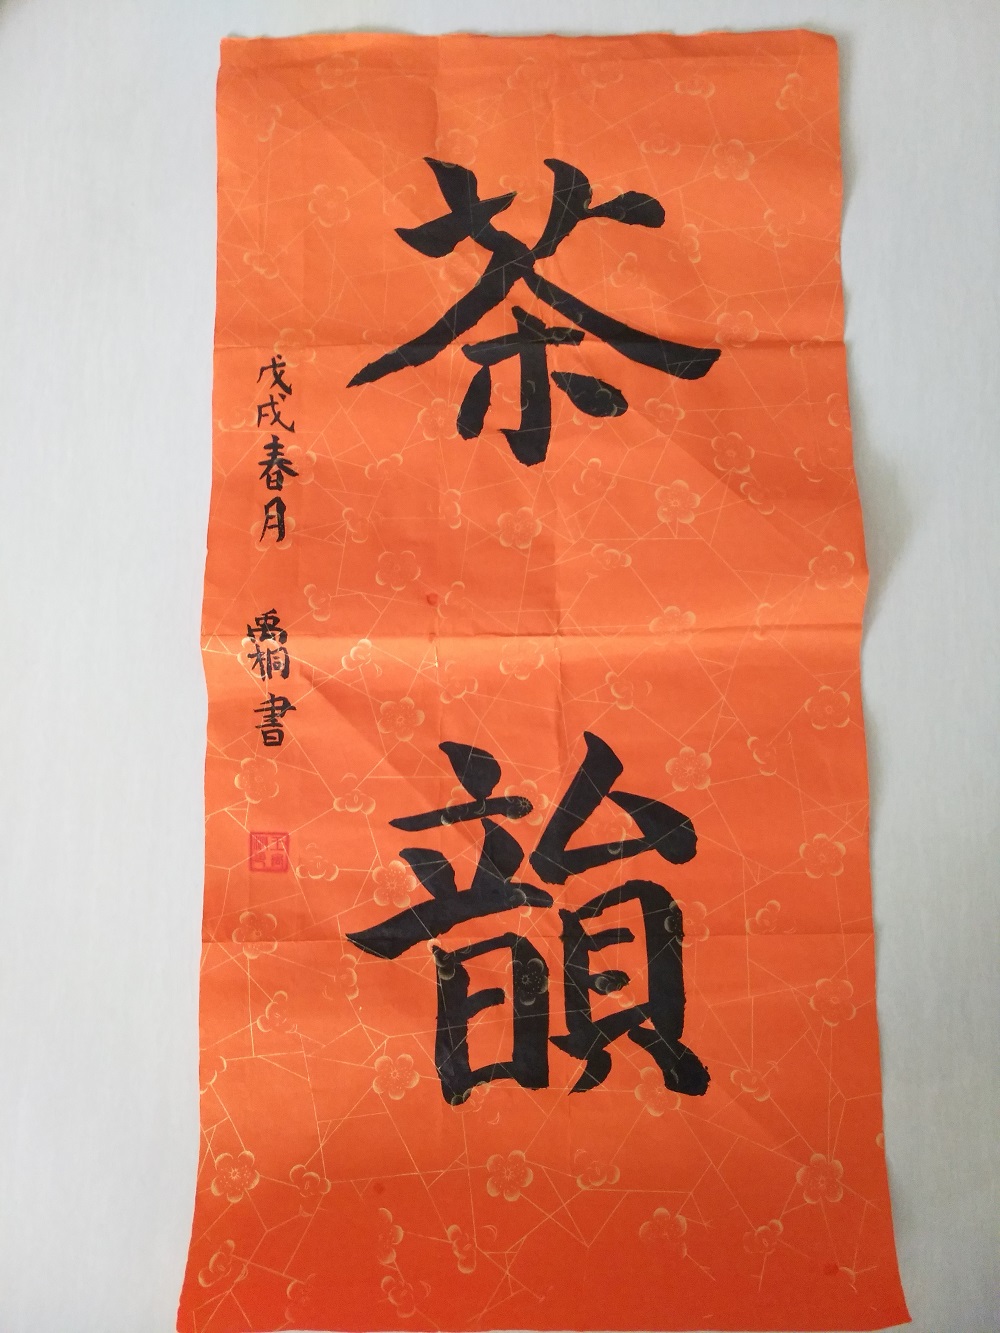 茶韻
戊戌春月 禹桐書